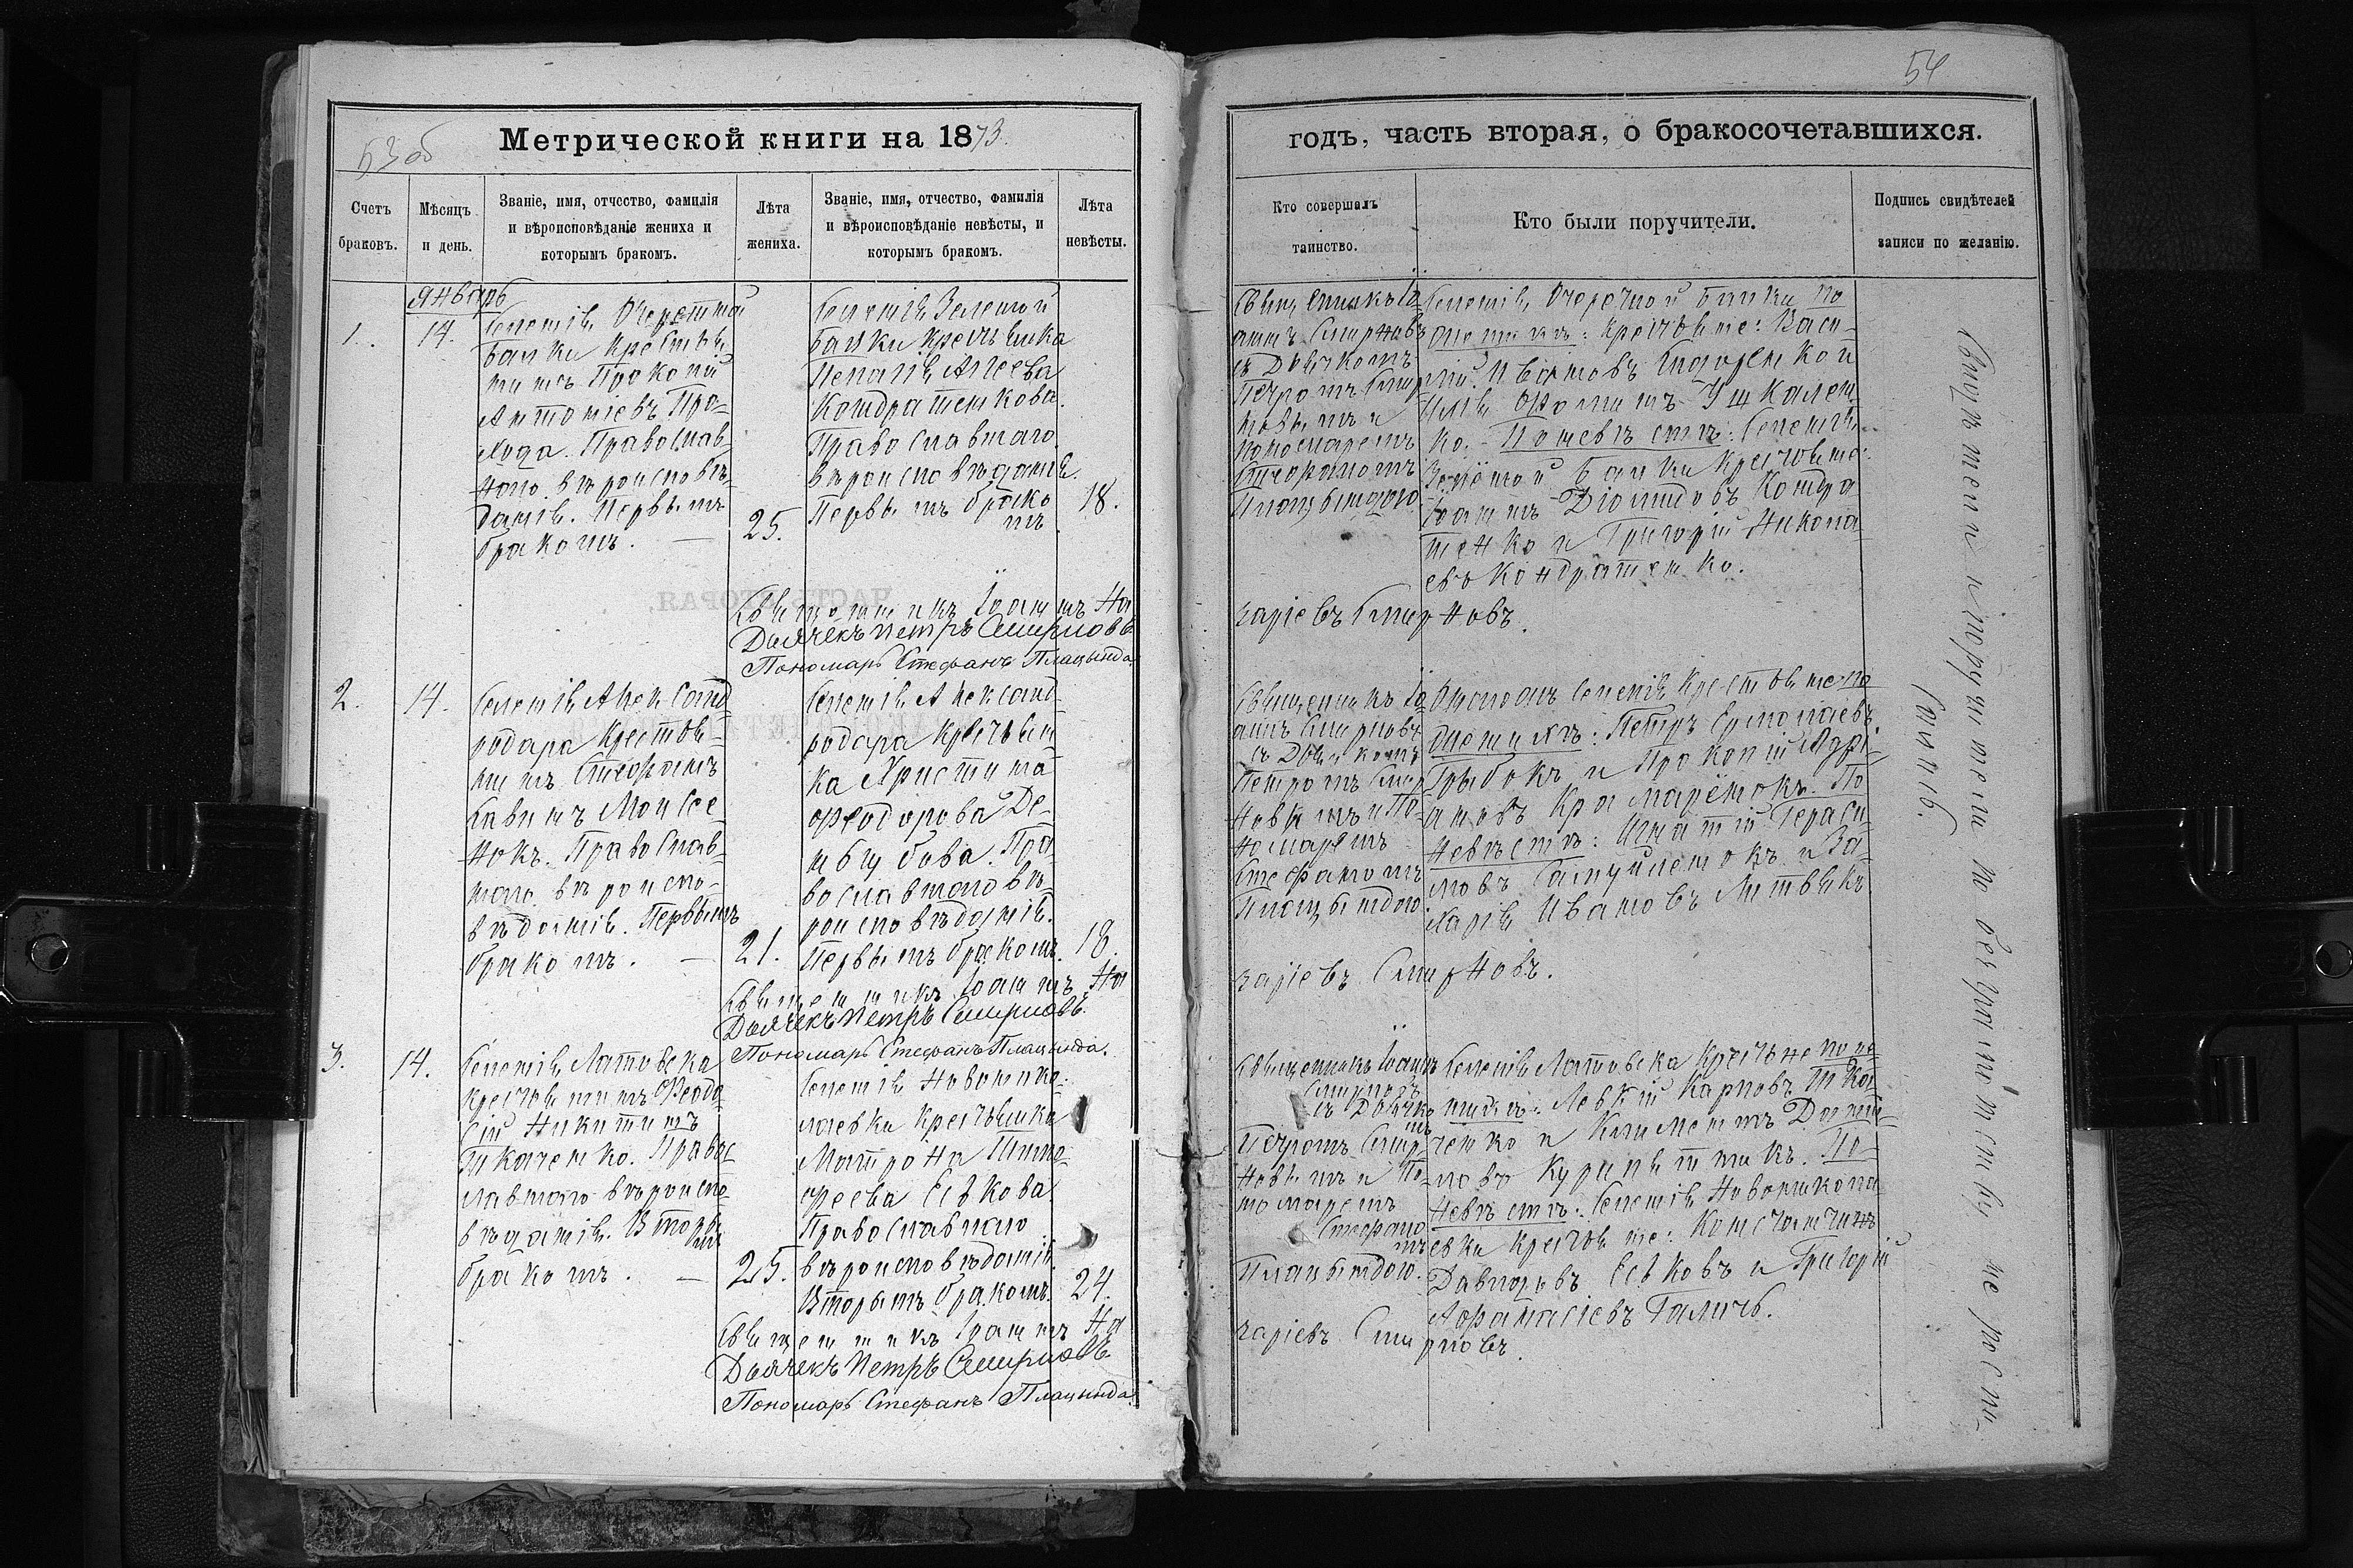 53 об
Метрической книги на 1873.
Счетъ браковъ.
Мѣсяцъ и день.
Званіе, имя, отчество, фамилія
и вѣроисповѣданіе жениха и
которымъ бракомъ.
Лѣта жениха.
Званіе, имя, отчество, фамилія
и вѣроисповѣданіе невѣсты, и
которымъ бракомъ.
Лѣта невѣсты.
Январь
1.
14.
Селенія Очеретной
Балки Крестья
нинъ Прокопій
Антоніевъ Про-
хода. Православ-
наго вѣроисповѣ-
данія. Первымъ
бракомъ. —
25.
Селенія Зеленой
Балки Крестьянка
Пелагія
Кондратенкова.
Православнаго
вѣроисповѣданія.
Первымъ брако
мъ
18.
Священникъ Іоаннъ На
Дьячекъ Петръ Смирновъ
Пономарь Стефанъ Плацында.
2.
14.
Селенія Александ
родара Крестья-
нинъ Стефанъ
Саввинъ Моисее
нокъ. Православ-
наго вѣроиспо-
вѣданія. Первымъ
бракомъ. —
21.
Селенія Александ-
родара Крестьян
ка Христина
Феодорова Де-
Пра
вославнаго вѣ-
роисповѣданія.
Первымъ бракомъ.
18.
Священникъ Іоаннъ На
Дьячекъ Петръ Смирновъ.
Пономарь Стефанъ Плацында.
3.
14.
Селенія Латовска
Крестьянинъ Феодо
сій Никитинъ
Ткаченко. Правос
лавнаго вѣроиспо-
вѣданія. Вторы
мъ
бракомъ. —
25.
Селенія Новонико-
лаевки Крестьянка
Матрона Тимо-
феева Еськова.
Православнаго
вѣроисповѣданія.
Вторымъ бракомъ.
24.
Священникъ Іоаннъ На
Дьячекъ Петръ Смирновъ.
Пономарь Стефанъ Плацында.
54
годъ, часть вторая, о бракосочетавшихся.
Кто совершалъ
таинство.
Кто были поручители.
Подпись свидѣтелей
записи по желанію.
Священникъ Іо
аннъ Смирновъ
съ Дьячкомъ
Петромъ Смир
новымъ и
пономаремъ
Стефаномъ
Плацындою
Селенія Очеретной Балки по
женихѣ: Крестьяне: Васи-
лій Ивановъ Сидоренко и
Илія Фоминъ Ушкален
ко. По невѣстѣ: Селенія
Зеленой Балки Крестьяне:
Іоаннъ Діомидовъ Кондра
тенко и Григорій Никола
евъ Кондратенко.
заріевъ Смирновъ.
Священникъ Іо
аннъ Смирновъ
съ Дьячкомъ
Петромъ Смир
новымъ и По-
номаремъ
Стефаномъ
Плацындою
селенія Крестьяне по
женихѣ: Петръ Ермолаевъ
Грыбокъ и Прокопій Адрі-
ановъ Крамарёнокъ. По
невѣстѣ: Игнатій Гераси-
мовъ Самуйленокъ и За-
харія Ивановъ Литвякъ
заріевъ Смирновъ.
Священникъ Іоаннъ
Смирновъ
съ Дьячко
мъ
Петромъ Смир-
новымъ и По-
номаремъ
Стефано
мъ
Плацындою.
Селенія Латовска Крестьяне по же-
нихѣ: Левкій Карповъ Тка-
ченко и Климентъ Дани-
ловъ По
невѣстѣ: Селенія Новоникола
евки Крестьяне: Константинъ
Давидовъ Еськовъ и Григорій
Афанасіевъ Галичъ.
заріевъ Смирновъ.
Свидѣтели и поручители по безграмотству не роспи-
сались.